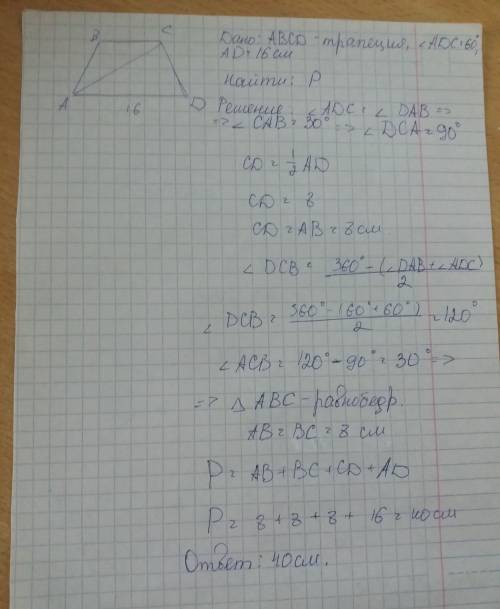 B C
Дано: ABCD - трапеция, ∠ADC=60°,
AD=16см
A 16 D
Найти: P
Решение: ∠ADC = ∠DAB =>
=> ∠CAB = 30° => ∠DCA = 90°
CD = 1/2 AD
CD = 8
CD = AB = 8 см
∠DCB = 360° - (∠DAB + ∠ADC) / 2
∠DCB = 360° - (60° + 60°) / 2 = 120°
∠ACB = 120° - 90° = 30° =>
=> Δ ABC - равнобедр.
AB = BC = 8 см
P = AB + BC + CD + AD
P = 8 + 8 + 8 + 16 = 40см
Ответ: 40см.